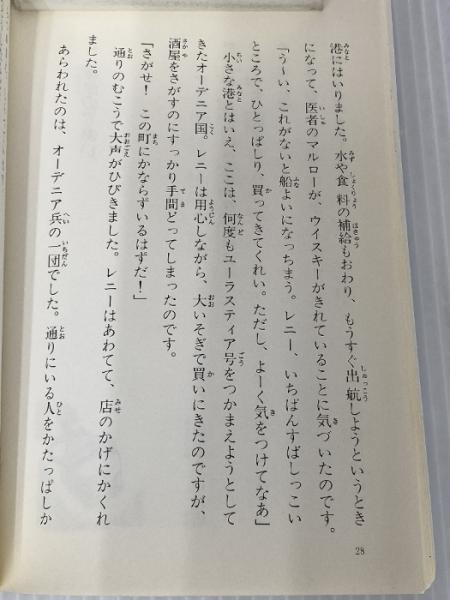 港にはいりました。水や食料の補給もおわり、もうすぐ出航しようというとき
になって、医者のマルローが、ウイスキーがきれていることに気づいたのです。
「う〜い、これがないと船よいになっちまう。レニー、いちばんすばしっこい
ところで、ひとっぱしり、買ってきてくれい。ただし、よーく気をつけてなあ」
小さな港とはいえ、ここは、何度もユーラスティア号をつかまえようとして
きたオーデニア国。レニーは用心しながら、大いそぎで買いにきたのですが、
酒屋をさがすのにすっかり手間どってしまったのです。
「さがせ！　この町にかならずいるはずだ！」
通りのむこうで大声がひびきました。レニーはあわてて、店のかげにかくれ
ました。
あらわれたのは、オーデニア兵の一団でした。通りにいる人をかたっぱしか
28